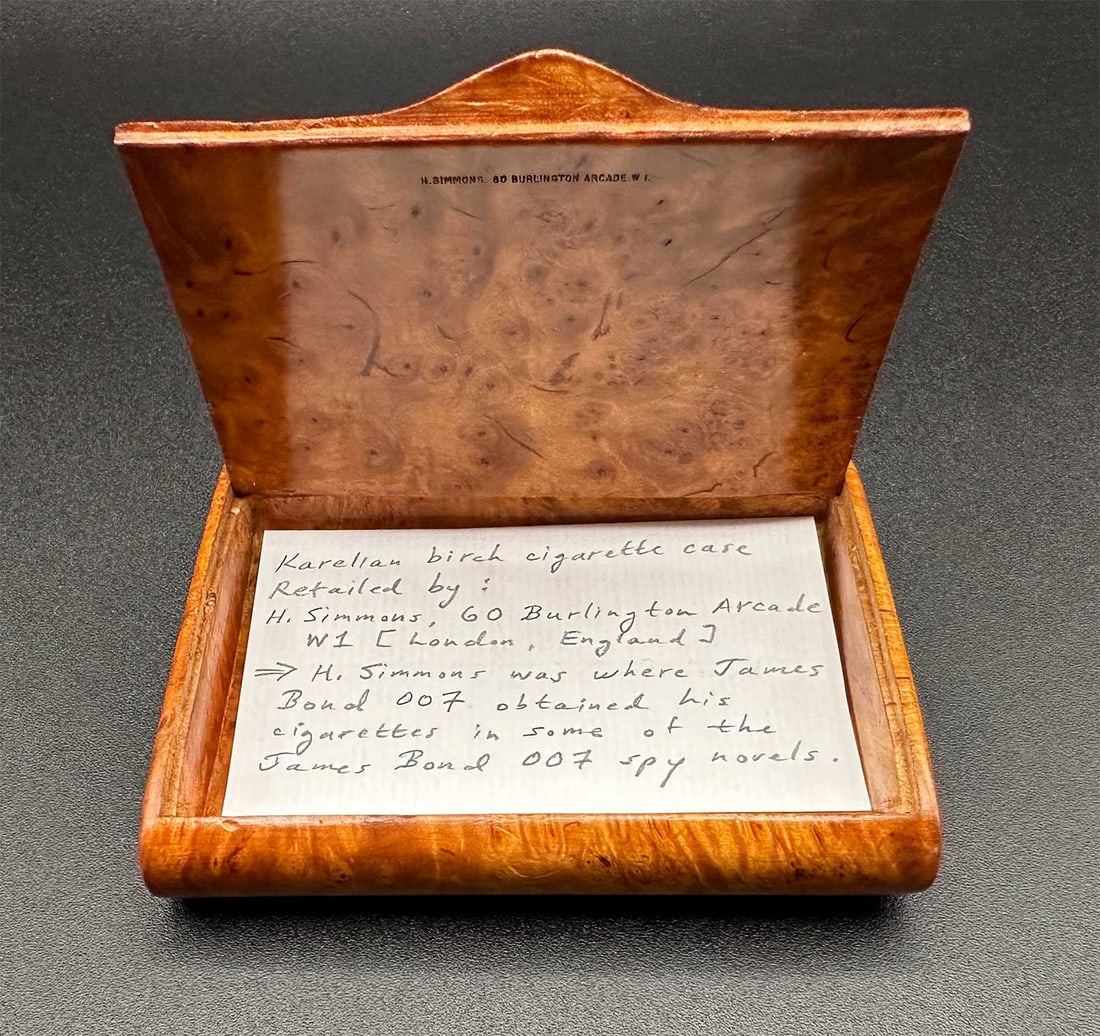 H. SIMMONS. 60 BURLINGTON ARCADE W 1.
Karelian birch cigarette case
Retailed by :
H. Simmons, 60 Burlington Arcade
W1 [ London, England ]
⇒ H. Simmons was where James
Bond 007 obtained his
cigarettes in some of the
James Bond 007 spy novels.